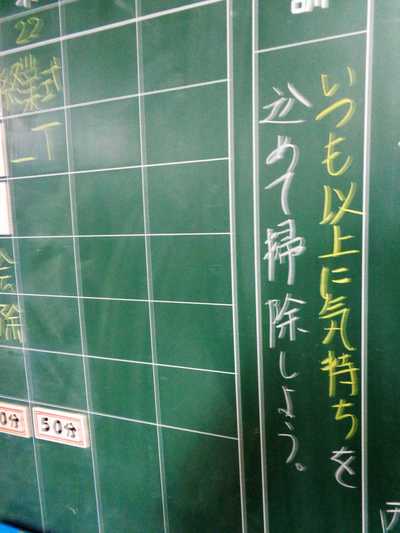 いつも以上に気持ちを
込めて掃除しよう。
22
終業式
一丁
除
50分